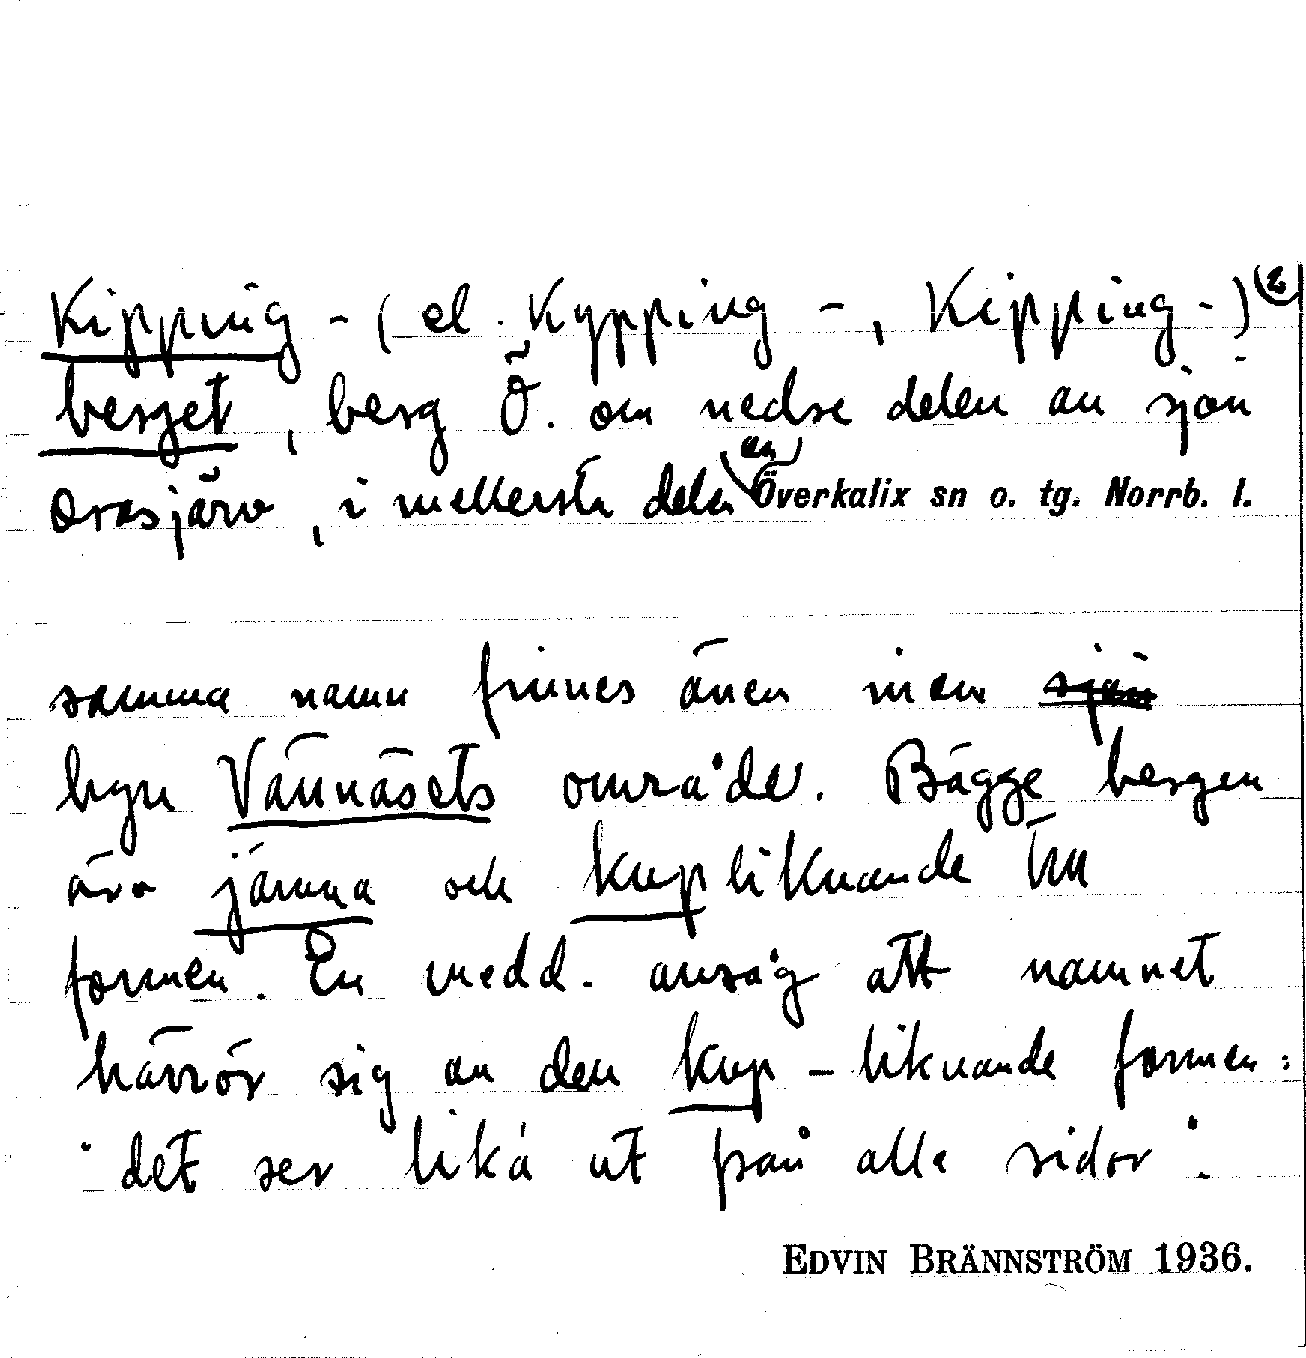 Kipping- (el. Kypping-, Kipping-)
berget, berg Ö. om nedre delen av sjön
Orasjärv, i mellersta delen av Överkalix sn o. tg. Norrb. l.
samma namn finnes även inom sjön
byn Vännäsets område. Bägge bergen
äro jämna och kupliknande till
formen. En medd. ansåg att namnet
härrör sig av den kup-liknande formen:
"det ser lika ut från alla sidor".
EDVIN BRÄNNSTRÖM 1936.